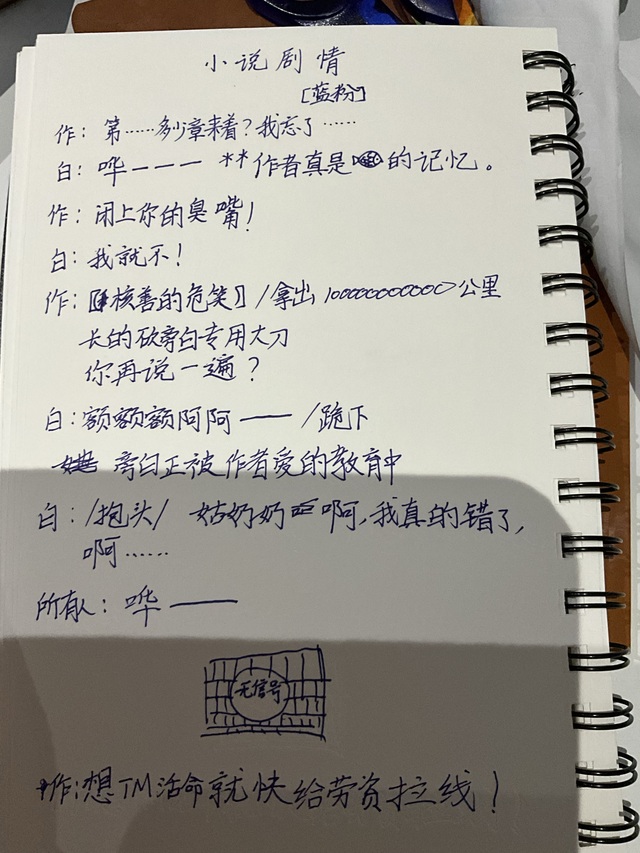 小说剧情
[蓝粉]
作：第……多少章来着？我忘了……
白：哗一一一 **作者真是的记忆。
作：闭上你的臭嘴！
白：我就不！
作：【核善的危笑】/拿出100000000000公里
长的砍旁白专用大刀
你再说一遍？
白：额额额阿阿——/跪下
旁白正被作者爱的教育中
白：/抱头/ 姑奶奶啊，我真的错了，
啊……
所有人：哗——
无信号
*作：想TM活命就快给劳资拉线！